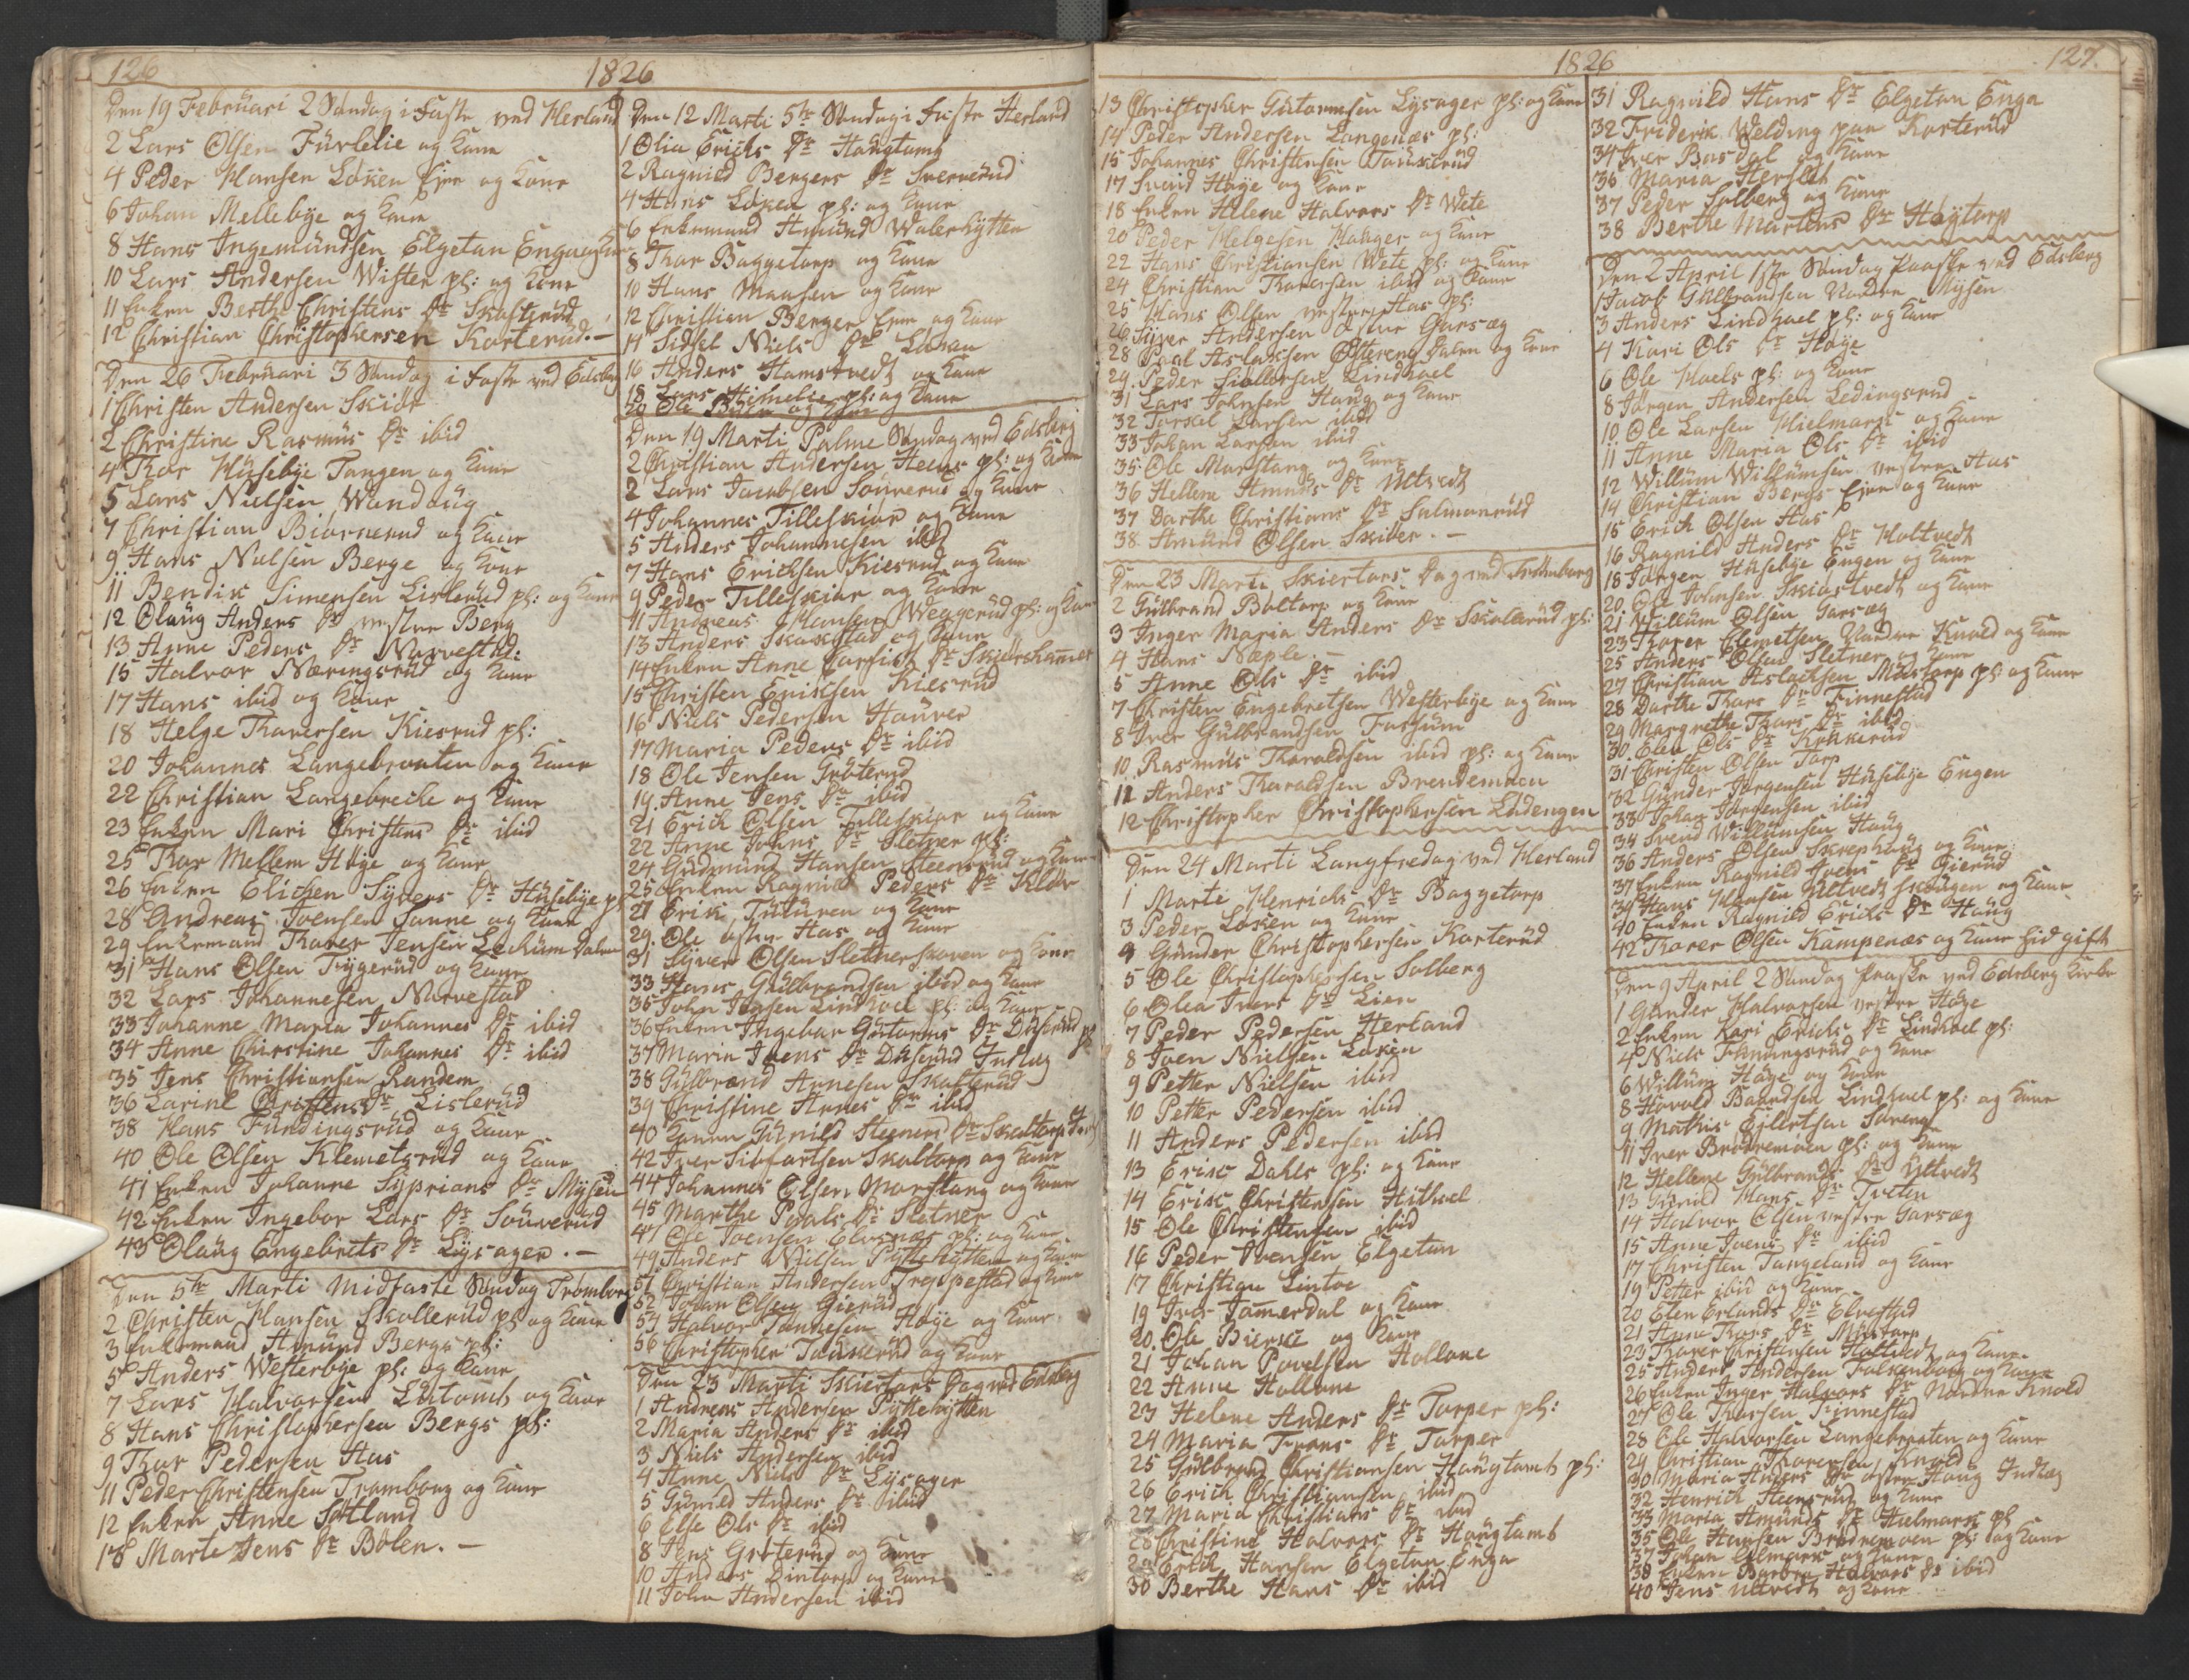 126
1826
Den 19 Februari 2 Søndag i Faste ved Herland
2 Lars Olsen Furlelie og Kone
4 Peder Hansen Løken Ejer og Kone
6 Johan Mellebye og Kone
8 Hans Ingemundsen Elgetun Enga og
10 Lars Andersen Wister pl: og Kone
11 Enken Berthe Christens Dr Skofterud
12 Christian Christophersen Korterud. –
Den 26 Februari 3 Søndag i Faste ved Edsberg
1 Christen Andersen Skiør
2 Christine Rasmus Dr ibid
4 Thor Husebye Tangen og Kone
5 Lars Nielsen Wandaug
7 Christian Biørnerud og Kone
9 Hans Nielsen Berge og Kone
11 Bendix Simensen Lislerud pl: og Kone
12 Olaug Anders Dr vestre Berg
13 Anne Peders Dr Narvestad:
15 Halvor Næringsrud og Kone
17 Hans ibid og Kone
18 Helge Thoresen Kiesrud pl:
20 Johannes Langebraaten og Kone
22 Christian Langebrecke og Kone
23 Enken Mari Christens Dr ibid
25 Thor Mellem Høye og Kone
26 Enken Elichen Syvers Dr Husebye pl
28 Andreas Joensen Tanne og Kone
29 Enkemand Thorer Jensen Leckum Dalen
31 Hans Olsen Trygerud og Kone
32 Lars Johannesen Narvestad
33 Johanne Maria Johannes Dr ibid
34 Anne Chirstine Johannes Dr ibid
35 Jens Christiansen Randem
36 Larine Christens Dr Lislerud
38 Hans Fundingsrud og Kone
40 Ole Olsen Klemetsrud og Kone
41 Enken Johanne Syprians Dr Mysen
42 Enken Ingebor Lars Dr Souverud
43 Olaug Engebrets Dr Lysager. –
Den 5te Marti Midfaste Søndag Trømborg
2 Christen Hansen Skallerud pl og Kone
3 Enkemand Amund Bergs pl:
5 Anders Westerbye pl: og Kone
7 Lars Halvorsen Lutomt og Kone
8 Hans Christophersen Bergs pl:
9 Thor Pedersen Aas
11 Peder Christensen Tromborg og Kone
12 Enken Anne Søtland
13 Marte Jens Dr Bølen. –
Den 12 Marti 5te Søndag i Faste Herland
1 Olia Erichs Dr Haugtomt
2 Ragnild Bergers Dr Sververud
4 Hans Løken pl: og Kone
6 Enkemand Amund Walerhytten
8 Thor Baggetorp og Kone
10 Hans Monsen og Kone
12 Christian Berger Ejer og Kone
14 Sidsel Niels Dr Løken
16 Anders Hamstvedt og Kone
18 Lars Himelie pl: og Kone
20 Ole Byen og Kone
Den 19 Marti Palme Søndag ved Edsberg
2 Christian Andersen Heens pl: og Kone
2 Lars Jacobsen Souverud og Kone
4 Johannes Tilleskiør og Kone
5 Anders Johannesen ibid
7 Hans Erichsen Kiesrud og Kone
9 Peder Tilleskiør og Kone
11 Andreas Hansen Weggerud pl: og Kone
13 Anders Skaxstad og Kone
14 Enken Anne Dr Skiershamer
15 Christen Eriksen Kiesrud
16 Niels Pedersen Haurer
17 Maria Peders Dr ibid
18 Ole Jensen Grøterud
19. Anne Jens Dr ibid
21 Erich Olsen Tilleskiær og Kone
22 Anne Johns Dr Sletner pl:
24. Gudmund Hansen Steensrud og Kone
25 Enken Ragnild Peders Dr Kløv
27 Erik Tuturen og Kone
29. Ole østre Aas og Kone
31 Syver Olsen Sletnerskoven og Kone
33 Hans Gulbrandsen ibid og Kone
35 John Jensen Lindhoel pl: og Kone
36 Enken Ingebor Gutorms Dr Duserud pl
37 Maria Joens Dr Duserud Indlæg
38 Gulbrand Arnesen Skofterud
39 Christine Arnes Dr ibid
40 Konen Gunild Steeners Dr Skaltorp
42 Iver Siefartsen Skaltorp og Kone
44 Johannes Olsen Morstang og Kone
45 Marthe Poals Dr Sletner
47 Ole Joensen Elvenæs pl: og Kone
49. Anders Nielsen Pytskehytten og Kone
51 Christian Andersen Treppestad og Kone
52 Johan Olsen Gierud
54 Halvor Tønnesen Høye og Kone
56 Christopher Tauserud og Kone
Den 23 Marti Skiertors Dag ved Edsberg
1 Andreas Andersen Pyskehytten
2 Maria Anders Dr ibid
3 Niels Andersen ibid
4 Anne Niels Dr Lysager
5 Gunild Anders Dr ibid
6 Else Ols Dr ibid
8 Jens Grøterud og Kone
10 Anders Dintorp og Kone
11 John Andersen ibid
1826
127.
13 Christopher Gutormsen Lysager pl: og Kone
14 Peder Andersen Langenæs pl:
15 Johannes Christensen Tauserud
17 Svend Høye og Kone
18 Enken Helene Halvors Dr Wete
20 Peder Helgesen Hauger og Kone
22 Hans Christiansen Wete pl: og Kone
24 Christian Thoresen ibid og Kone
25 Hans Olsen vestre Aas pl:
26 Syver Andersen østre Garsæg
28 Paal Aslaksen Østereng Dalen og Kone
29. Peder Siellersen Lindhoel
31 Lars Johnsen Haug og Kone
32 Torkel Larsen ibid
33 Johan Larsen ibid
35 Ole Morstang og Kone
36 Hellene Amunds Dr Ultvedt
37 Dorthe Christians Dr Salmonrud
38. Amund Olsen Skiber. –
Den 23 Marti Skiertors Dag ved Trømborg
2 Gulbrand Boltorp og Kone
3 Inger Maria Anders Dr Skallerud pl:
4 Hans Næple. –
5 Anne Ols Dr ibid
7 Christen Engebretsen Westerbye og Kone
8 Iver Gulbrandsen Fossum
10 Rasmus Tharaldsen ibid pl: og Kone
11 Anders Tharaldsen Brendemoen
12 Christopher Christophersen Ladengen
Den 24 Marti Langfredag ved Herland
1 Marte Henrichs Dr Baggetorp
3 Peder Løsken og Kone
4 Gunder Christophersen Korterud
5 Ole Christophersen Solberg
6 Olea Ivers Dr Lien
7 Peder Pedersen Herland
8 Joen Nielsen Løken
9 Petter Nielsen ibid
10 Petter Pedersen ibid
11 Anders Pedersen ibid
13 Erik Dahls pl: og Kone
14 Erik Christensen Huthoel
15 Ole Christensen ibid
16 Peder Ivensen Elgetun
17 Christian Lintoe
19 Iver Jamerdal og Kone
20. Ole Bierke og Kone
21 Johan Povelsen Hollone
22 Anne Hollone
23 Helene Anders Dr Torper pl:
24 Maria Frans Dr Torper
25 Gulbrand Christiansen Haugtomt pl:
26 Erich Christiansen ibid
27 Maria Christians Dr ibid
28 Christine Halvors Dr Haugtomt
29 Erich Hansen Elgetun Enga
30 Berthe Hans Dr ibid
31 Ragnild Hans Dr Elgetun Enga
32 Friderik Welding paa Korterud
34 Iver Basdal og Kone
36 Maria Hersleth
37 Peder Solberg og Kone
38 Berthe Martens Dr Høytorp
Den 2 April 1ste Søndag Paaske ved Edsberg
1 Jacob Gulbrandsen Nordre Mysen
3 Anders Lindhoel pl: og Kone
4 Kari Ols Dr Høye
6 Ole Hoels pl: og Kone
8 Jørgen Andersen Ledingsrud
10 Ole Larsen Hielmark og Kone
11 Anne Maria Ols Dr ibid
12 Willum Willumsen vestre Aas
14 Christian Bergs Ejer og Kone
15 Erich Olsen Aas
16 Ragnild Anders Dr Holtvedt
18 Jørgen Husebye Engen og Kone
20. Ole Johnsen Skiøstvedt og Kone
21 Willum Olsen Garsæg
23 Thorer Clemetsen Nordre Knold og Kone
25 Anders Olsen Sletner og Kone
27 Christian Aslachsen Mustorp pl: og Kone
28 Dorthe Thors Dr Finnestad
29 Margrethe Thors Dr ibid
30. Elen Ols Dr Krokerud
31 Christen Olsen Torp
32 Gunder Jørgensen Husebye Engen
33 Johan Jørgensen ibid
34 Svend Willumsen Haug
36 Anders Olsen Skrephaug og Kone:
37 Enken Ragnild Joens Dr Gierud
39 Hans Hansen Ultvedt Skougen og Kone
40 Enken Ragnild Erichs Dr Haug
42 Thorer Olsen Kampenæs og Kone hid gift
Den 9 April 2 Søndag Paaske ved Edsberg Kirke
1 Gunder Halvorsen vestre Høye
2 Enken Kari Erichs Dr Lindhoel pl:
4 Niels Fundingsrud og Kone
6 Willum Høye og Kone
8 Hovold Baardsen Lindhoel pl: og Kone
9 Mathis Ejlertsen Søreng
11 Iver Brødremoen pl: og Kone
12 Hellene Gulbrands Dr Ultvedt
13 Gunild Hans Dr Tveten
14 Halvor Olsen vestre Garsæg
15 Anne Joens Dr ibid
17 Christen Tangelund og Kone
19 Petter ibid og Kone
20 Elen Erlands Dr Elvestad
21 Anne Thors Dr Mustorp
23 Thorer Christensen Holtvedt og Kone
25 Anders Andersen Falkenborg og Kone
26 Enken Inger Halvors Dr Nordre Knold
27 Ole Thorsen Finnestad
28 Ole Halvorsen Langebraaten og Kone
29 Christian Thoresen Knold
30 Maria Anders Dr østre Haug Indlæg
32 Henrich Steensrud og Kone
33 Maria Amunds Dr Hielmark pl
35 Ole Hansen Brødremoen pl: og Kone
37 Johan Gilmark og Kone
38 Enken Barbra Halvors Dr ibid
40 Jens Ultvedt og Kone